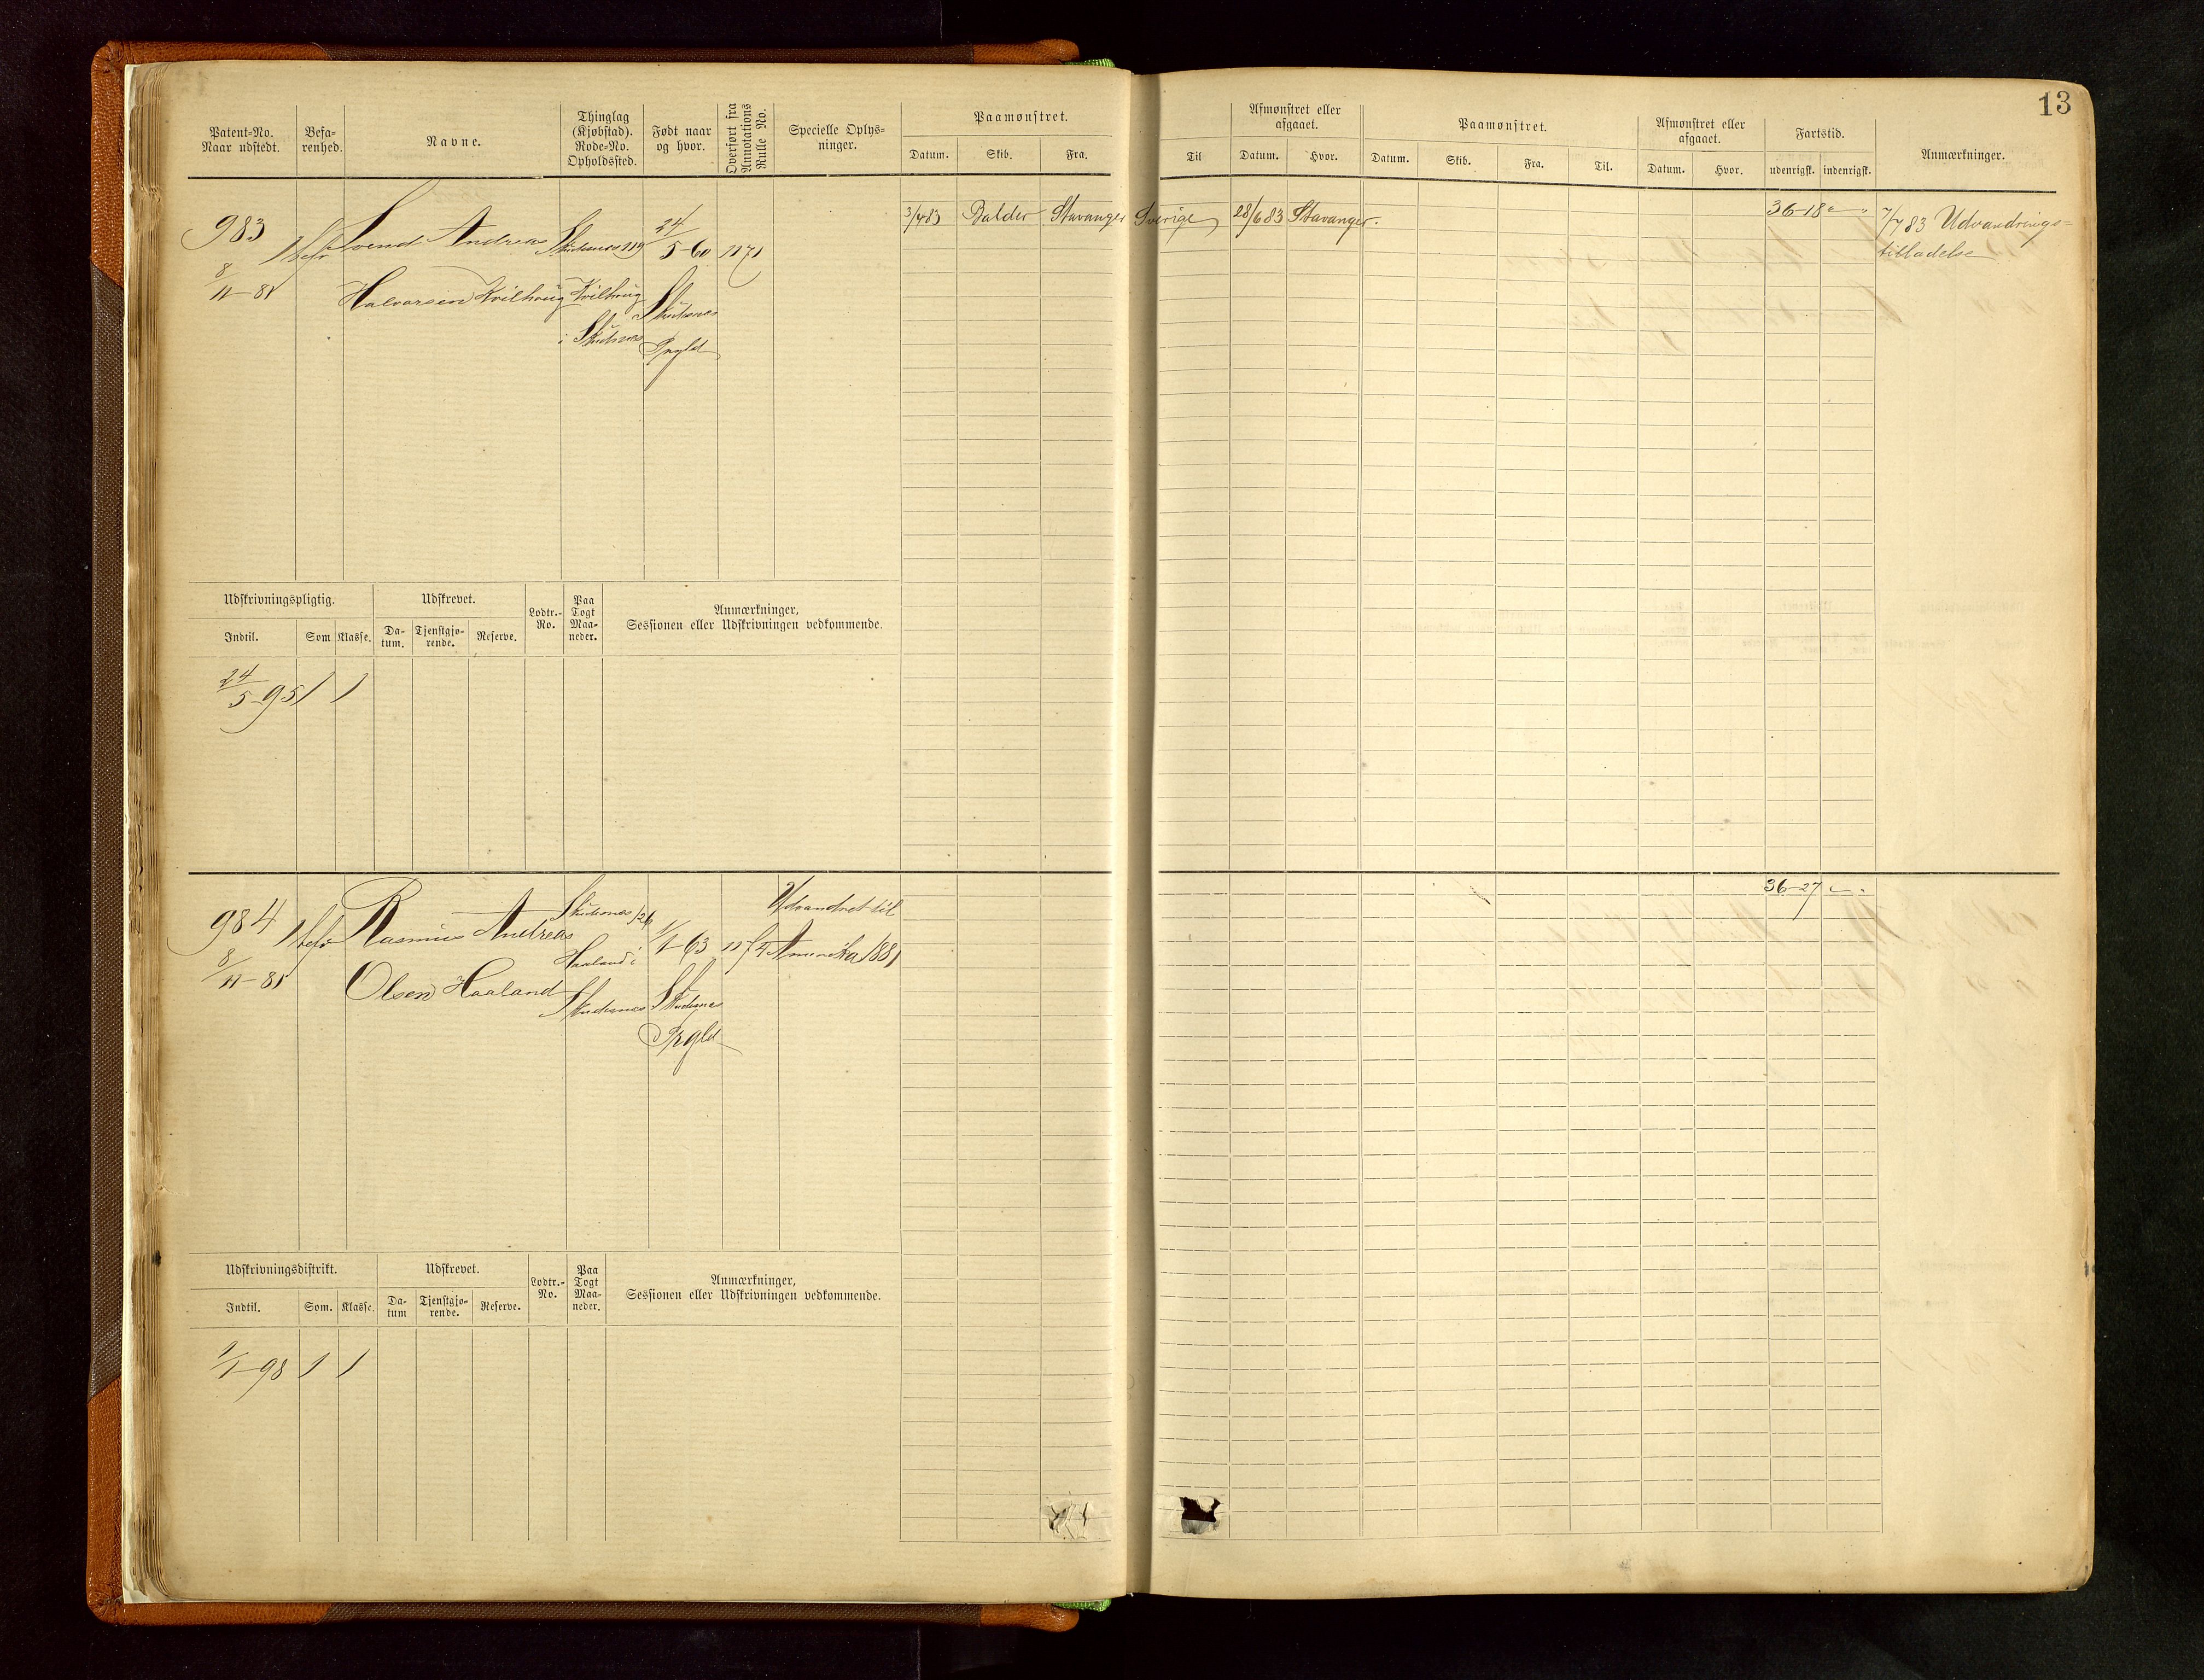 13
Patent-No.
Naar udstedt.
Befa-
renhed.
Navne.
Thinglag
(Kjøbstad).
Rode-No.
Opholdssted.
Født naar
og hvor.
Overført fra
Annotations
Rulle No.
Specielle Oplys-
ninger.
Paamønstret.
Datum. Skib. Fra. Til
Afmønstret eller
afgaaet.
Datum. Hvor.
Paamønstret.
Datum. Skib. Fra. Til.
Afmønstret eller
afgaaet.
Datum. Hvor.
Fartstid.
udenrigsk. indenrigsk.
Anmærkninger.
983
8/11-81
Svend Andreas
Halvorsen Kvilhaug
Skudenes 119
Kvilhaug
i Skudenes
24/5-60
Skudenes
Prgld
1171
3/4 83 Balder Stavanger Sverige 28/6 83 Stavanger.
36-18
7/7 83 Udvandrings=
tilladelse
Udskrivningspligtig.
Indtil. Som Klasse.
Udskrevet.
Da-
tum.
Tjenstgjø-
rende.
Reserve.
Lodtr.-
No.
Paa
Togt
Maa-
neder.
Anmærkninger,
Sessionen eller Udskrivningen vedkommende.
24/5-95 1 1
984
8/11-81
Rasmus Andreas
Olsen Haaland
Skudenes 126
Haaland i
Skudenes
1/1-63
Skudenes
Prgld
Udvandret til
Amerika 1881
36-27
Udskrivningsdistrikt.
Indtil. Som. Klasse.
Udskrevet.
Da-
tum
Tjenstgjø-
rende.
Reserve.
Lodtr.-
No.
Paa
Togt
Maa-
neder.
Anmærkninger,
Sessionen eller Udskrivningen vedkommende.
1/1-98 1 1